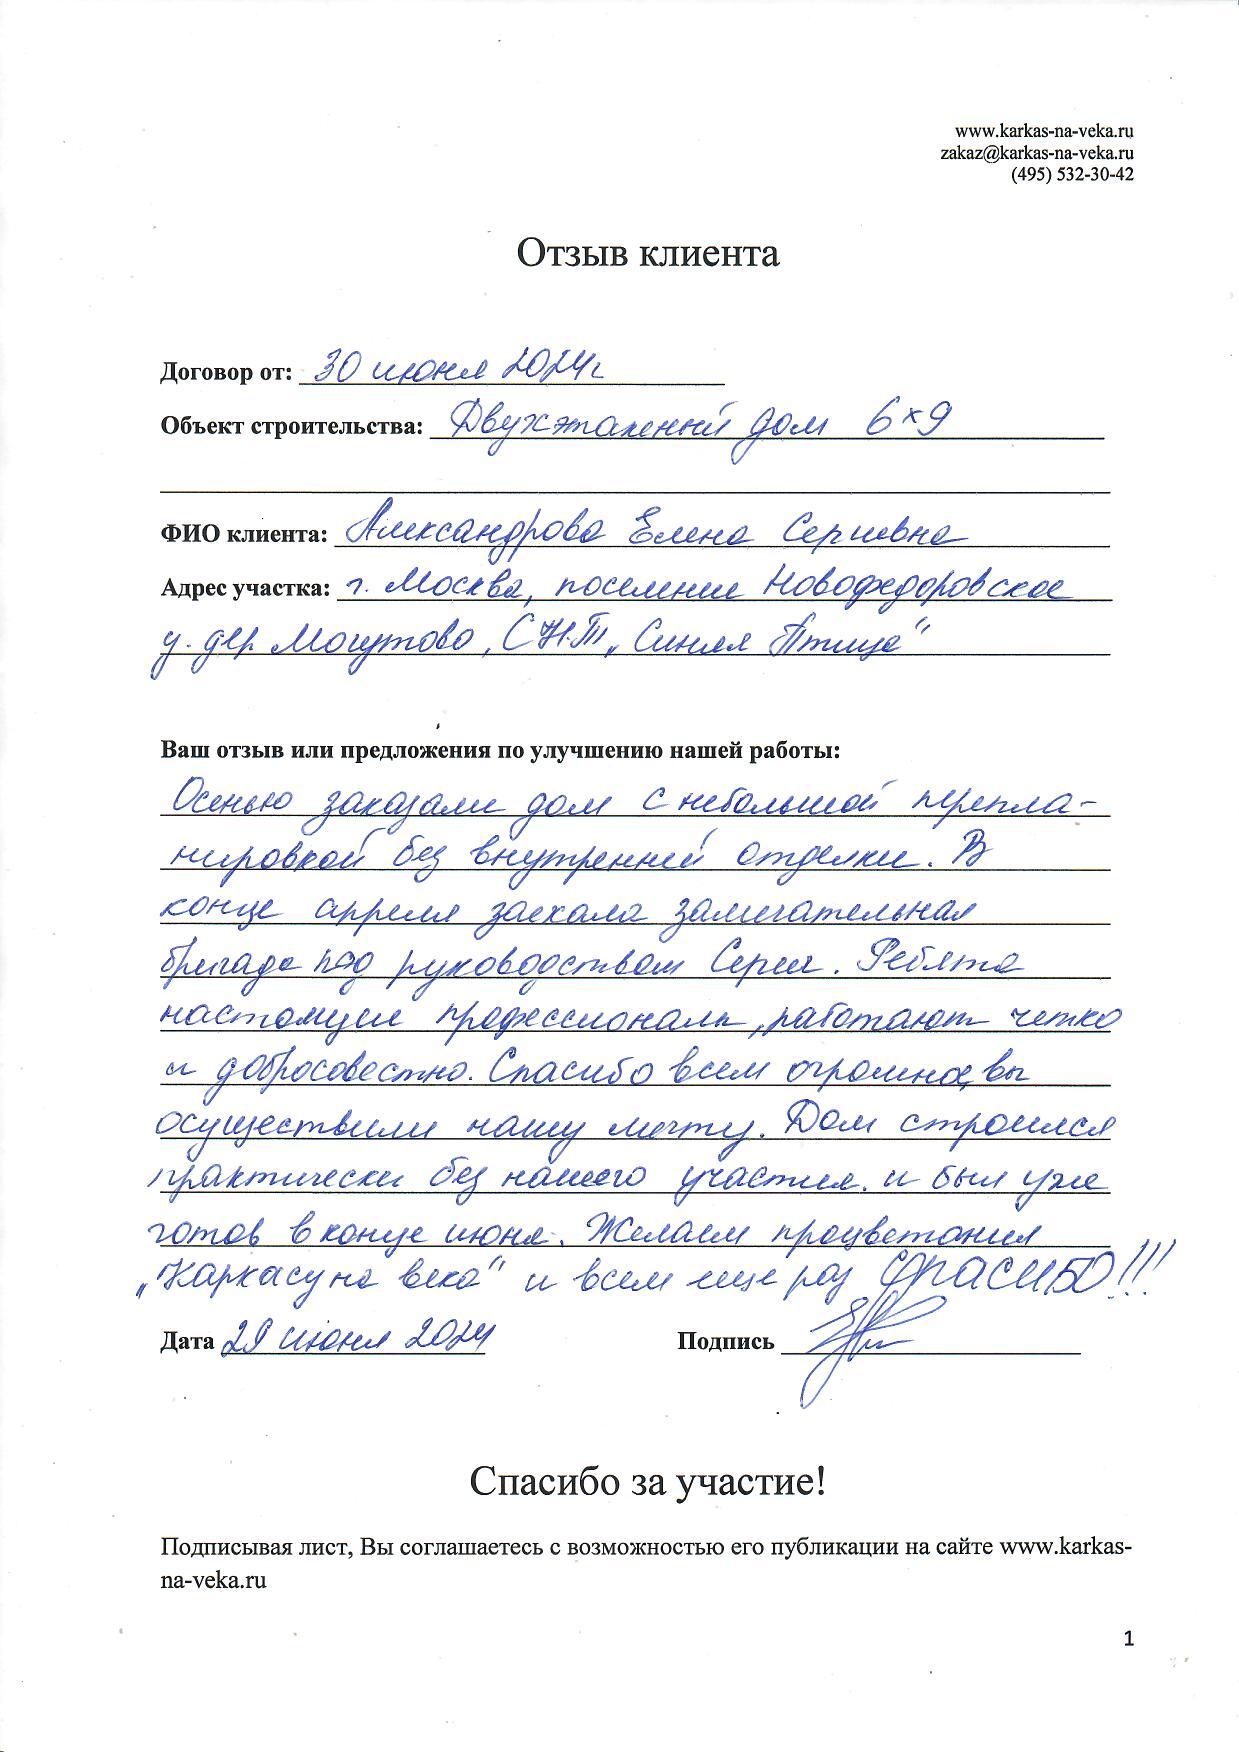 www.karkas-na-veka.ru
zakaz@karkas-na-veka.ru
(495) 532-30-42
Отзыв клиента
Договор от: 30 июня 2024г
Объект строительства: Двухэтажный дом 6×9
ФИО клиента: Александрова Елена Сергеевна
Адрес участка: г. Москва, поселение Новофедоровское
у. дер Могутово, С.Н.Т „Синяя Птица“
Ваш отзыв или предложения по улучшению нашей работы:
Осенью заказали дом с небольшой перепла-
нировкой без внутренней отделки. В
конце апреля заехала замечательная
бригада под руководством Сергея. Ребята
настоящие профессионалы, работают четко
и добросовестно. Спасибо всем огромное, вы
осуществили нашу мечту. Дом строился
практически без нашего участия. и был уже
готов в конце июня. Желаем процветания
„Каркасу на века“ и всем еще раз СПАСИБО!!!
Дата 29 июня 2024 Подпись
Спасибо за участие!
Подписывая лист, Вы соглашаетесь с возможностью его публикации на сайте www.karkas-
na-veka.ru
1